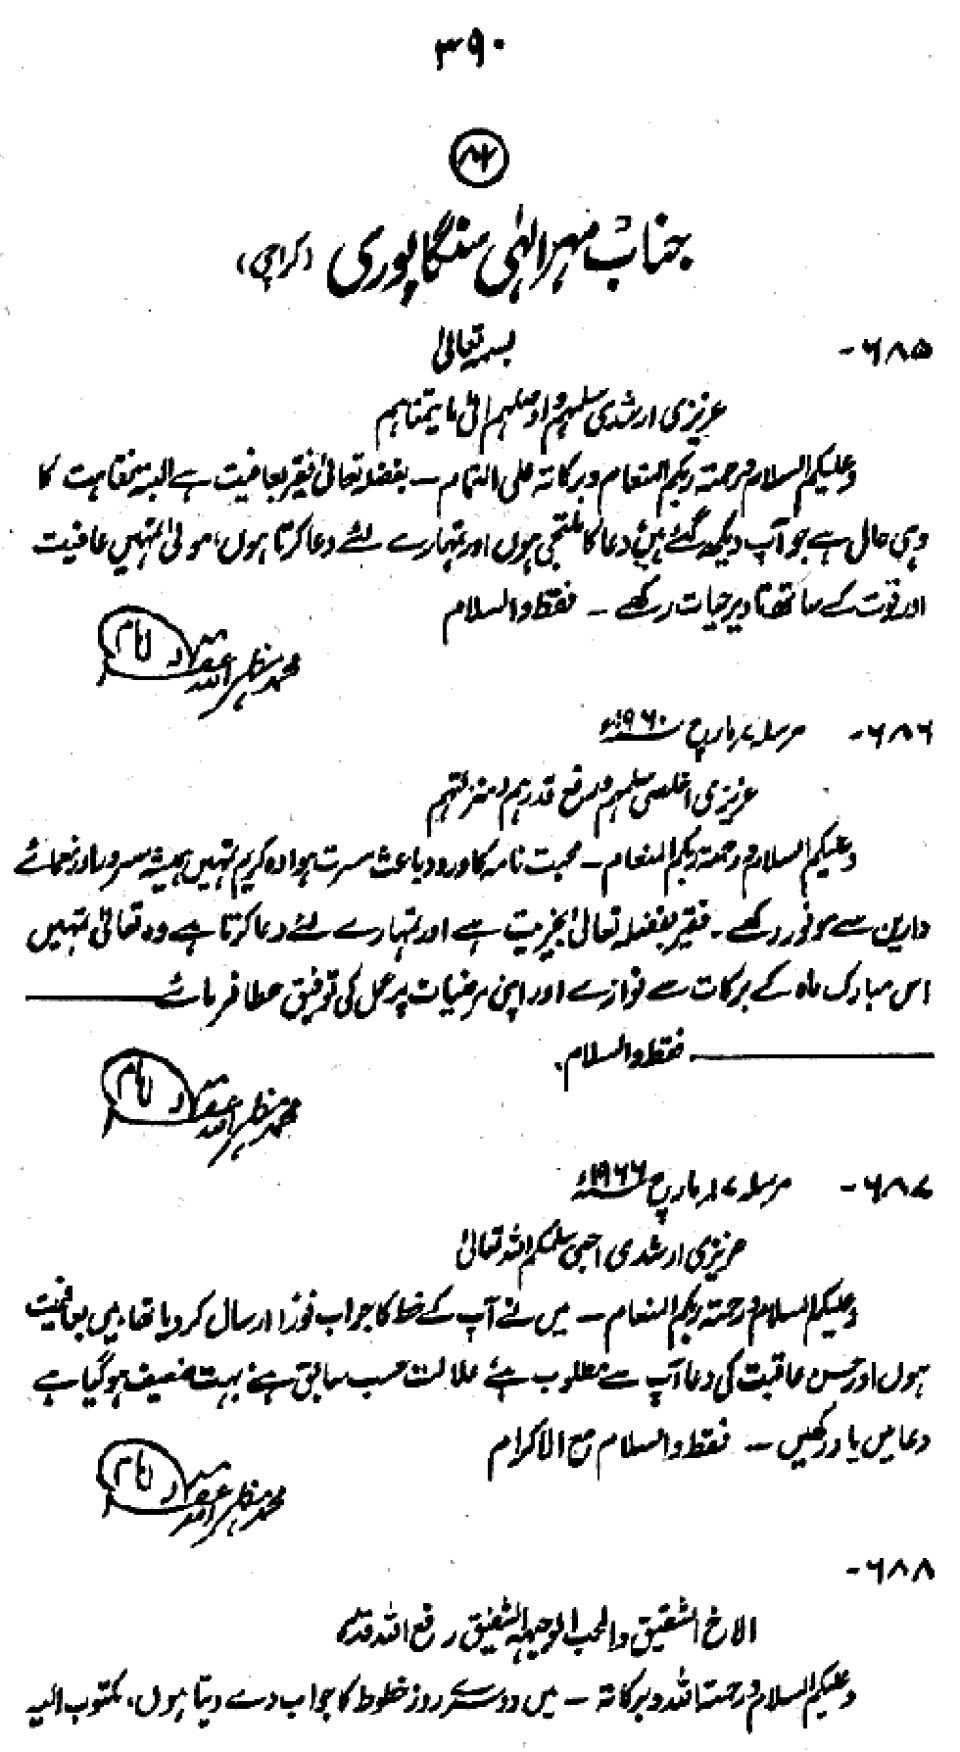 ۳۹۰
جناب مہر الٰہی سنگاپوری (کراچی)
۶۸۵-
بسمہ تعالیٰ
عزیزی ارشدی سلمہم واوصلہم الیٰ ما یتمناہم
وعلیکم السلام ورحمۃ ربکم المنعام وبرکاتہ علی التمام — بفضلہ تعالیٰ فقیر بعافیت ہے البتہ نقاہت کا
وہی حال ہے جو آپ دیکھ گئے ہیں دعا کا ملتجی ہوں اور تمہارے لئے دعا کرتا ہوں، مولیٰ تمہیں عافیت
اور قوت کے ساتھ تا دیر حیات رکھے — فقط والسلام
محمد مظہر اللہ
۶۸۶- مرسلہ ۷ مارچ ۱۹۶۰ء
عزیزی اخلصی سلمہم ورفع قدرہم ومنزلتہم
وعلیکم السلام ورحمۃ ربکم المنعام — محبت نامہ کا ورود باعث مسرت ہوا وہ کریم تمہیں ہمیشہ مسرور اور نعمائے
دارین سے موفور رکھے۔ فقیر بفضلہ تعالیٰ بخیریت ہے اور تمہارے لئے دعا کرتا ہے وہ تعالیٰ تمہیں
اس مبارک ماہ کے برکات سے نوازے اور اپنی مرضیات پر عمل کی توفیق عطا فرمائے
فقط والسلام۔
محمد مظہر اللہ
۶۸۷- مرسلہ ۱۷ مارچ ۱۹۶۶ء
عزیزی ارشدی احبی سلمکم اللہ تعالیٰ
وعلیکم السلام ورحمۃ ربکم المنعام — میں نے آپ کے خط کا جواب فوراً ارسال کر دیا تھا میں بعافیت
ہوں اور حسن عاقبت کی دعا آپ سے مطلوب ہے علالت حسب سابق ہے بہت ضعیف ہو گیا ہے
دعا میں یاد رکھیں — فقط والسلام مع الاکرام
محمد مظہر اللہ
۶۸۸-
الاخ الشقیق والمحب الوجیہہ الشفیق رفع اللہ قدرہ
وعلیکم السلام ورحمۃ اللہ وبرکاتہ — میں دوسرے روز خطوط کا جواب دے دیتا ہوں، مکتوب الیہ